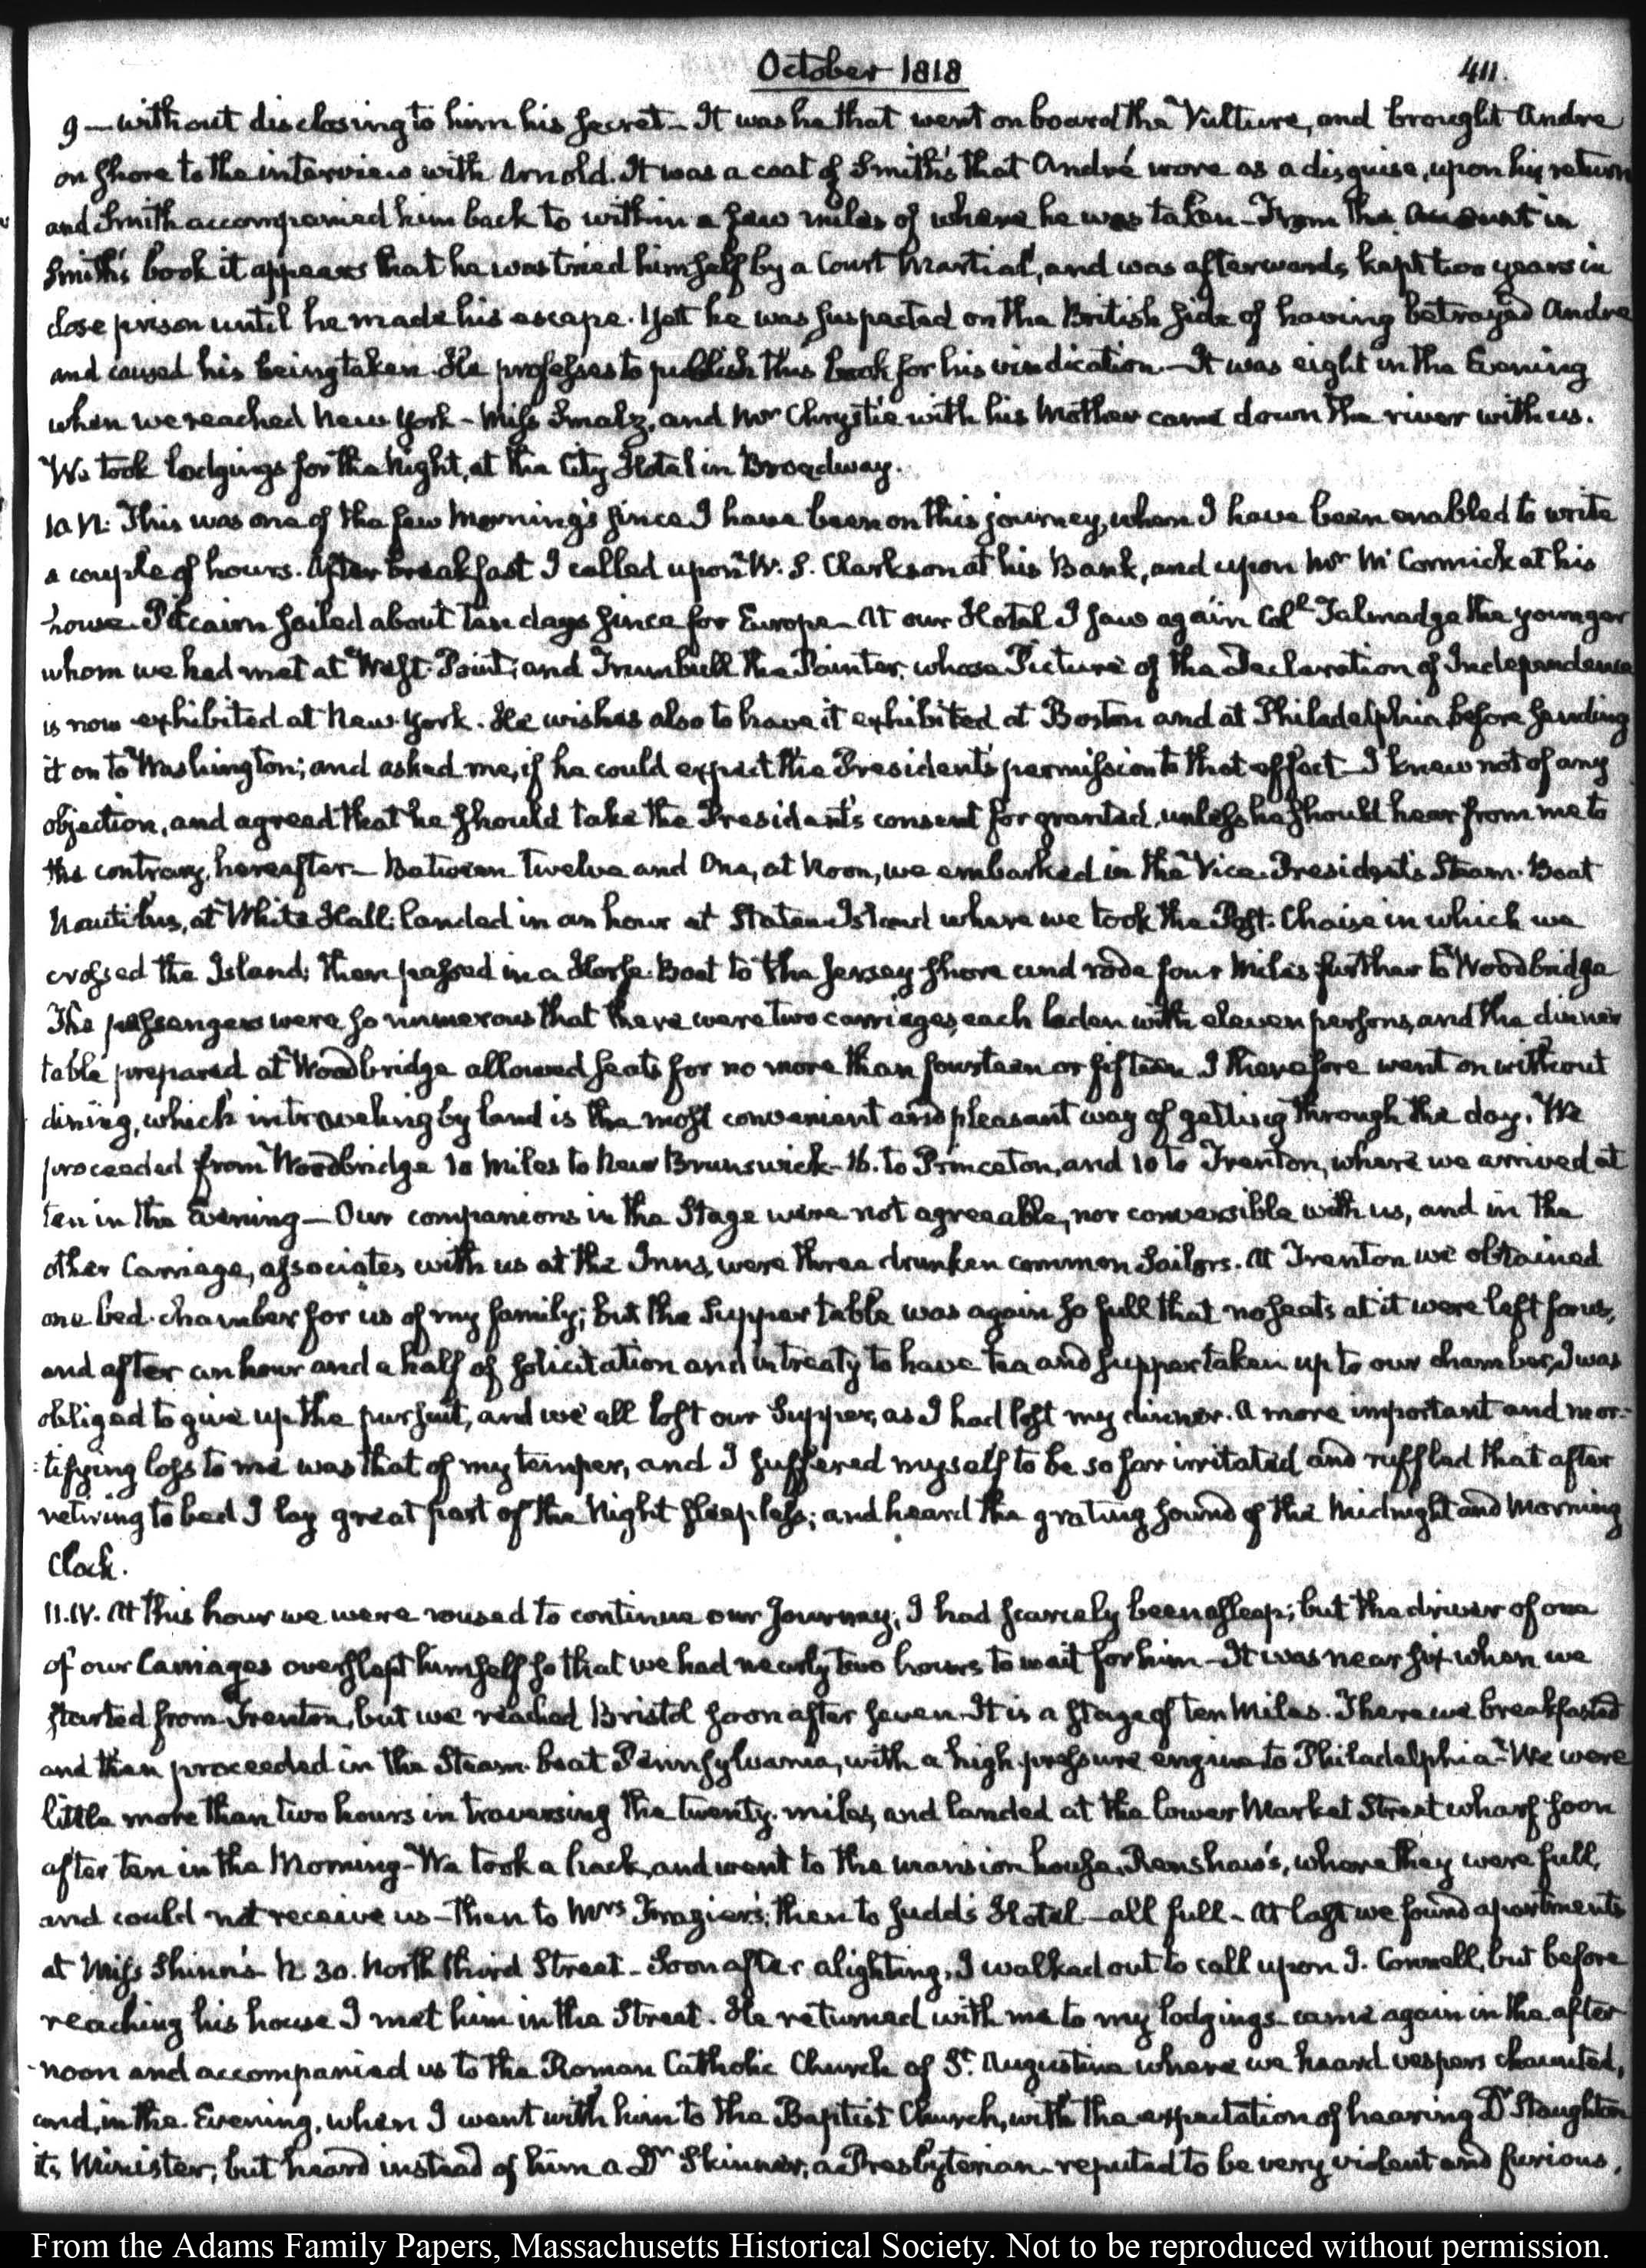 October 1818
411.
9 — without disclosing to him his secret — It was he that went on board the Vulture, and brought André
on shore to the interview with Arnold. It was a coat of Smith's that André wore as a disguise, upon his return
and Smith accompanied him back to within a few miles of where he was taken — From the account in
Smith's book it appears that he was tried himself by a Court Martial, and was afterwards kept two years in
close prison until he made his escape. Yet he was suspected on the British side of having betrayed André
and caused his being taken. He professes to publish this book for his vindication. — It was eight in the Evening
when we reached New York — Miss Smalz, and Mr Chrystie with his Mother came down the river with us.
We took lodgings for the Night, at the City Hotel in Broadway.
10. VI. This was one of the few Morning's since I have been on this journey, when I have been enabled to write
a couple of hours. After breakfast I called upon W. S. Clarkson at his Bank, and upon Mr McCormick at his
house. Pitcairn sailed about ten days since for Europe — At our Hotel I saw again Coll Talmadge the younger
whom we had met at West-Point; and Trumbull the Painter, whose Picture of the Declaration of Independence
is now exhibited at New-York. He wishes also to have it exhibited at Boston and at Philadelphia before sending
it on to Washington; and asked me, if he could expect the President's permission to that effect — I knew not of any
objection, and agreed that he should take the President's consent for granted, unless he should hear from me to
the contrary, hereafter — Between twelve and One, at Noon, we embarked in the Vice-President's Steam-Boat
Nautilus, at White Hall: landed in an hour at Staten-Island where we took the Post-Chaise in which we
crossed the Island; then passed in a Horse-Boat to the Jersey shore and rode four Miles further to Woodbridge
The passengers were so numerous that there were two carriages, each laden with eleven persons, and the dinner
table prepared at Woodbridge allowed seats for no more than fourteen or fifteen I therefore went on without
dining, which in traveling by land is the most convenient and pleasant way of getting through the day. We
proceeded from Woodbridge 10 miles to New Brunswick — 16. to Princeton, and 10 to Trenton, where we arrived at
ten in the Evening — Our companions in the Stage were not agreeable, nor conversible with us, and in the
other Carriage, associates with us at the Inns, were three drunken common Sailors. At Trenton we obtained
one bed-chamber for us of my family; but the supper table was again so full that no seats at it were left for us,
and after an hour and a half of solicitation and intreaty to have tea and supper taken up to our chamber, I was
obliged to give up the pursuit, and we all lost our Supper, as I had lost my dinner. A more important and mor-
:tifying loss to me was that of my temper, and I suffered myself to be so far irritated and ruffled that after
retiring to bed I lay great part of the Night sleepless; and heard the grating sound of the Midnight and Morning
Clock.
11. IV. At this hour we were roused to continue our Journey; I had scarcely been asleep; but the driver of one
of our Carriages overslept himself so that we had nearly two hours to wait for him — It was near six when we
started from Trenton, but we reached Bristol soon after seven. It is a stage of ten Miles. There we breakfasted
and then proceeded in the Steam-boat Pennsylvania, with a high pressure engine to Philadelphia — We were
little more than two hours in traversing the twenty-miles, and landed at the lower Market Street wharf soon
after ten in the Morning — We took a hack, and went to the mansion house, Renshaw's, where they were full,
and could not receive us — then to Mrs Frazier's; then to Judd's Hotel — all full — At last we found apartments
at Miss Shinn's N. 30. North third Street — Soon after alighting, I walked out to call upon J. Connell, but before
reaching his house I met him in the Street. He returned with me to my lodgings — came again in the after
-noon and accompanied us to the Roman Catholic Church of St. Augustine where we heard vespers chaunted,
and, in the Evening, when I went with him to the Baptist Church, with the expectation of hearing Dr Staughton
its Minister; but heard instead of him a Dr Skinner, a Presbyterian — reputed to be very violent and furious,
From the Adams Family Papers, Massachusetts Historical Society. Not to be reproduced without permission.